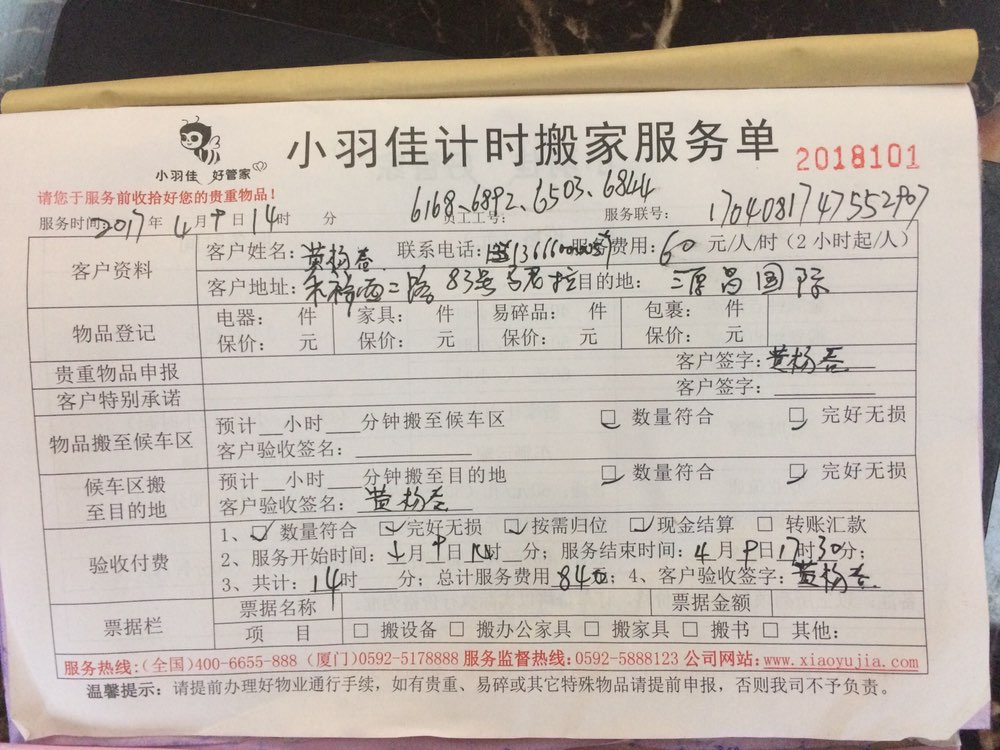 小羽佳 好管家
小羽佳计时搬家服务单 2018101
请您于服务前收拾好您的贵重物品！
服务时间：2017年4月9日14时 分 员工工号：6168、6892、6503、6844 服务联号：1704081747552907
客户资料 客户姓名：黄杨春 联系电话： 服务费用：60元/人/时（2小时起/人）
客户地址：禾祥西二路83号 目的地：源昌国际
物品登记 电器： 件 家具： 件 易碎品： 件 包裹： 件
保价： 元 保价： 元 保价： 元 保价： 元
贵重物品申报 客户签字：黄杨春
客户特别承诺 客户签字：
物品搬至候车区 预计__小时___分钟搬至候车区 数量符合 完好无损
客户验收签名：
候车区搬至目的地 预计__小时___分钟搬至目的地 数量符合 完好无损
客户验收签名：黄杨春
验收付费 1、数量符合 完好无损 按需归位 现金结算 转账汇款
2、服务开始时间：4月9日14时__分；服务结束时间：4月9日17时30分；
3、共计：14时___分；总计服务费用840；4、客户验收签字：黄杨春
票据栏 票据名称 票据金额
项 目 搬设备 搬办公家具 搬家具 搬书 其他：
服务热线：（全国）400-6655-888（厦门）0592-5178888 服务监督热线：0592-5888123 公司网站：www.xiaoyujia.com
温馨提示：请提前办理好物业通行手续，如有贵重、易碎或其它特殊物品请提前申报，否则我司不予负责。